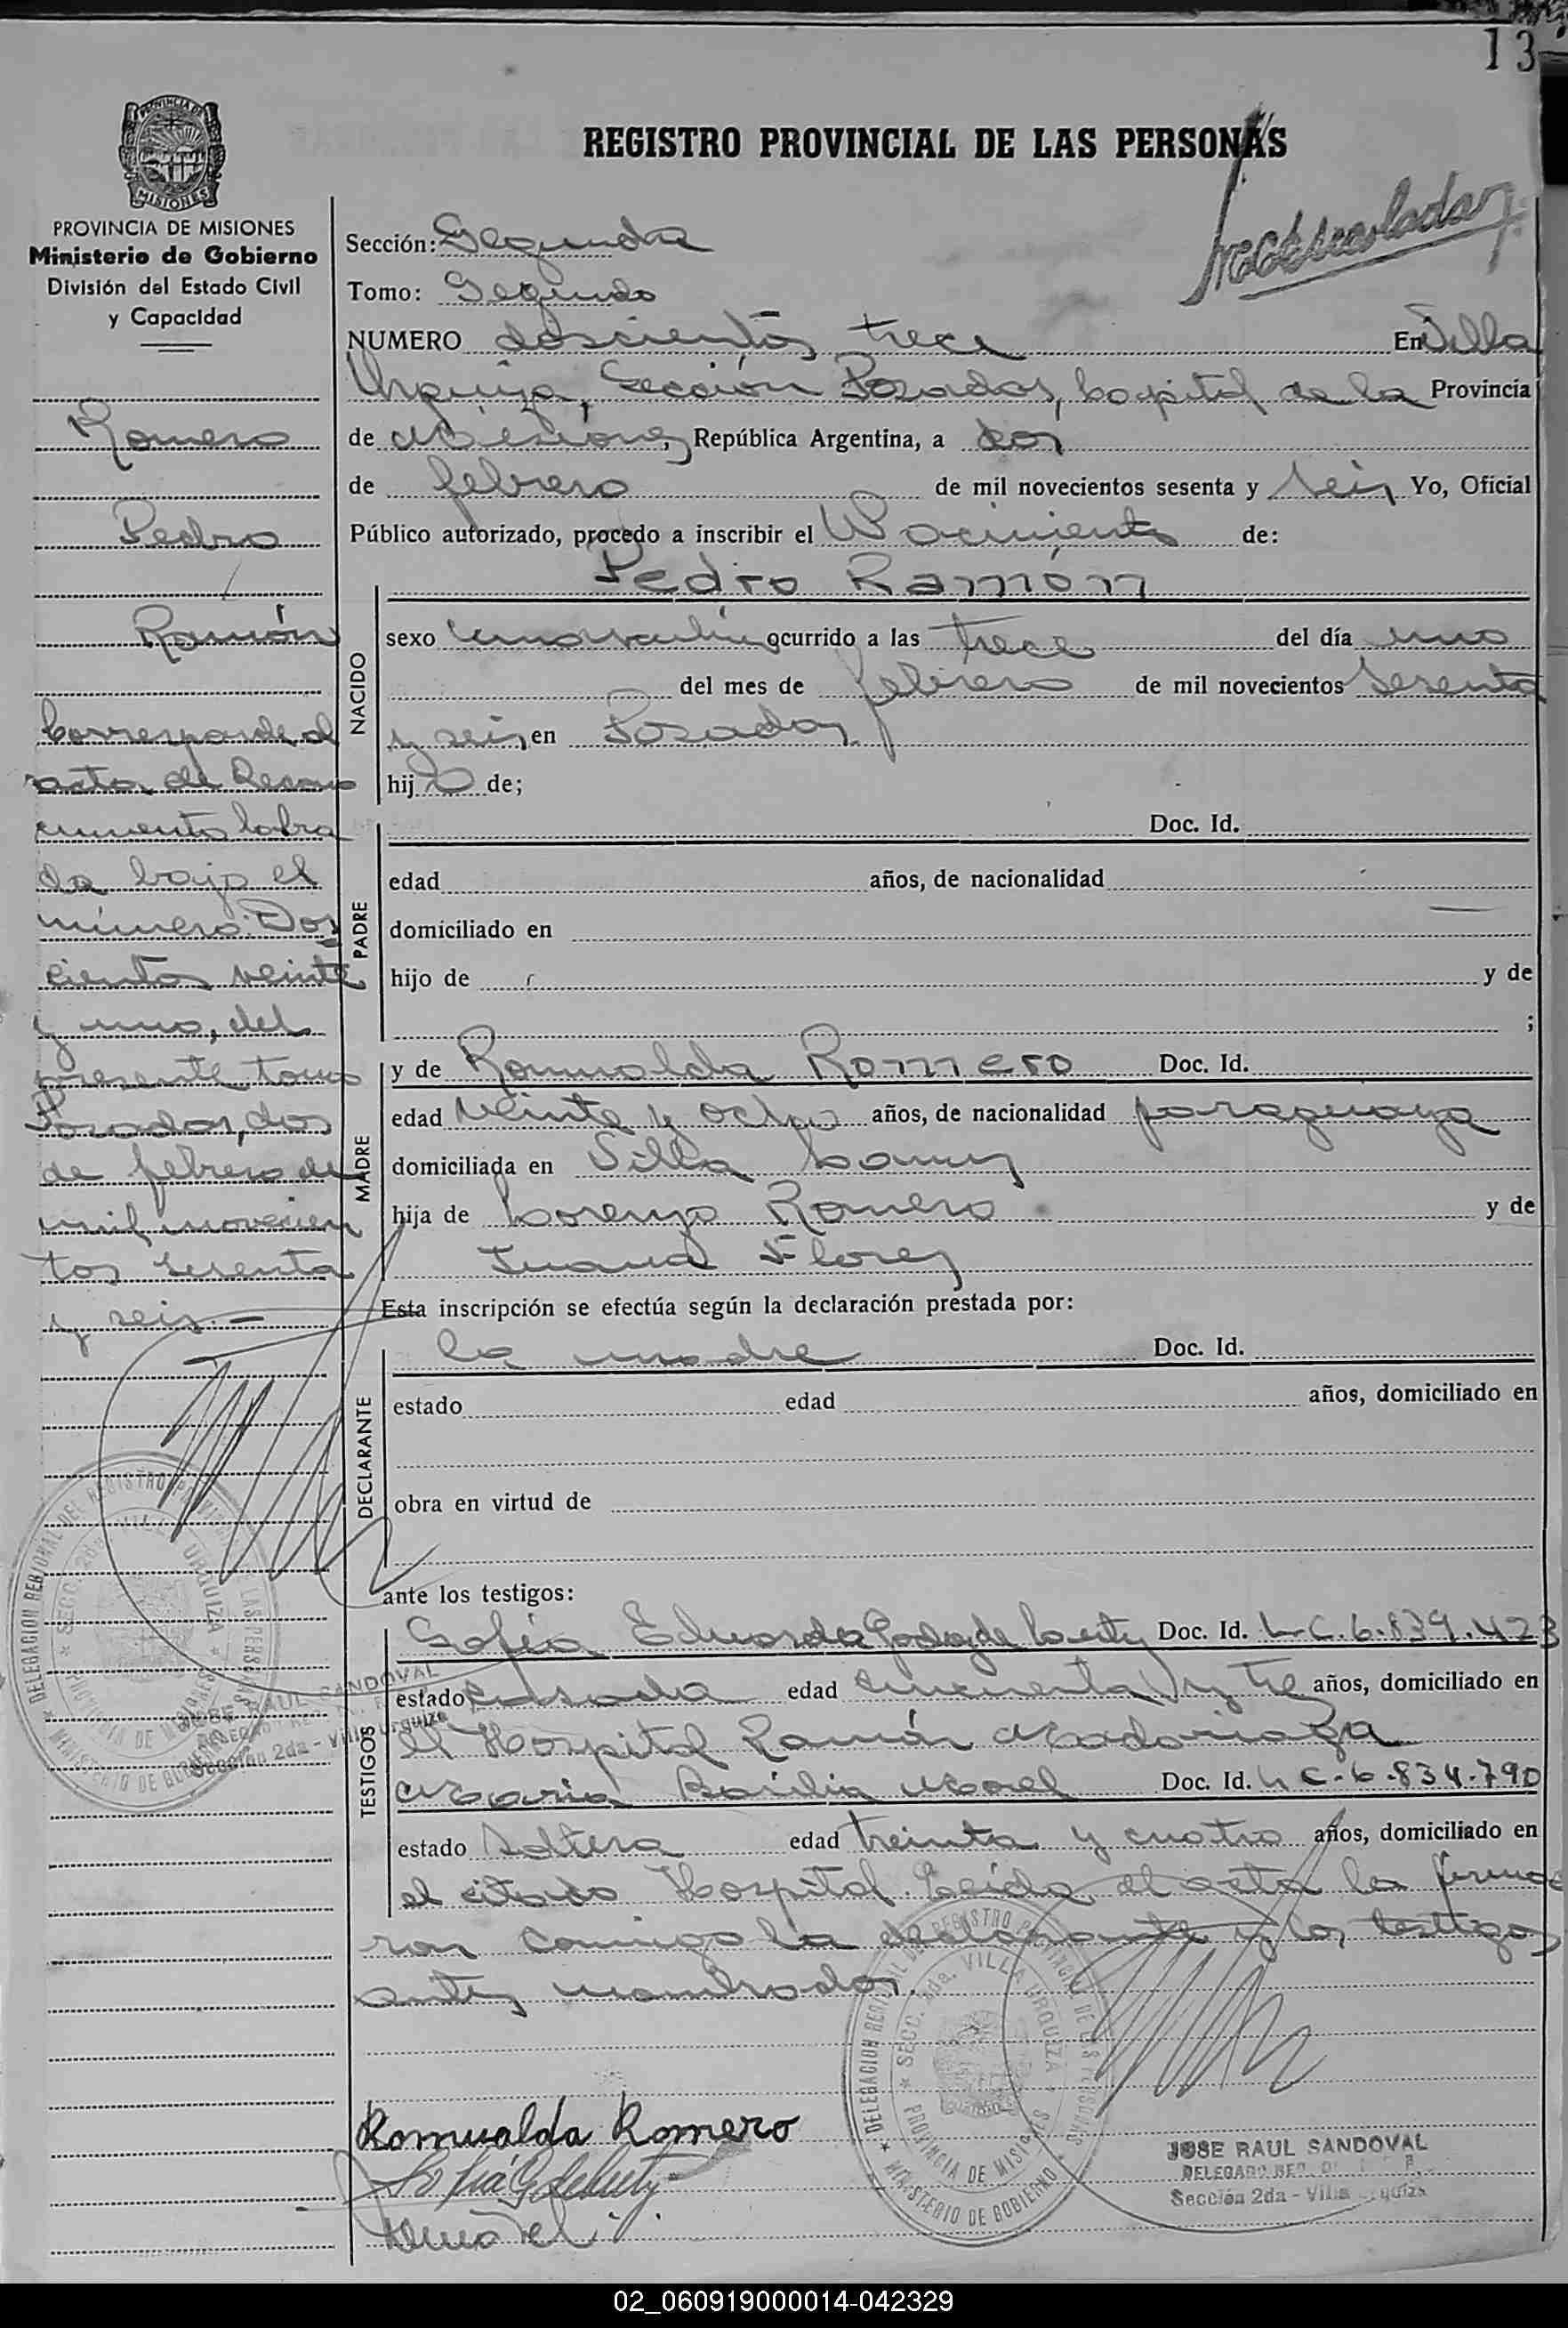 13
REGISTRO PROVINCIAL DE LAS PERSONAS
PROVINCIA DE MISIONES
Ministerio de Gobierno
División del Estado Civil
y Capacidad
Romero
Pedro
Ramón
Corresponde al
acta de Recono
cimiento labra
da bajo el
número Dos
cientos veinte
y uno, del
presente tomo
Posadas, dos
de febrero de
mil novecien
tos sesenta
y seis.-
Sección: Segunda
Tomo: Segundo
NUMERO doscientos trece En Villa
Urquiza, Sección Posadas, Capital de la Provincia
de Misiones, República Argentina, a dos
de febrero de mil novecientos sesenta y seis Yo, Oficial
Público autorizado, procedo a inscribir el Nacimiento de:
Pedro Ramón
NACIDO
sexo masculino ocurrido a las trece del día uno
del mes de febrero de mil novecientos sesenta
y seis, en Posadas
hijo de;
PADRE
Doc. Id.
edad años, de nacionalidad
domiciliado en
hijo de y de
;
MADRE
y de Romualda Romero Doc. Id.
edad veinte y ocho años, de nacionalidad paraguaya
domiciliada en Villa
hija de Lorenzo Romero y de
Juana Flores
Esta inscripción se efectúa según la declaración prestada por:
DECLARANTE
la madre Doc. Id.
estado edad años, domiciliado en
obra en virtud de
ante los testigos:
TESTIGOS
Sofia Eduarda de Doc. Id. L.C. 6.839.423
estado casada edad cincuenta y tres años, domiciliado en
el Hospital Ramón Madariaga
Maria Morel Doc. Id. L C. 6.834.790
estado soltera edad treinta y cuatro años, domiciliado en
el citado Hospital. Leída el acta la firma
ron conmigo la declarante y los testigos
antes nombrados.
Romualda Romero
JOSE RAUL SANDOVAL
Sección 2da - Villa Urquiza
DELEGACION REGIONAL DEL REGISTRO PROVINCIAL DE LAS PERSONAS
SECC. 2da. VILLA URQUIZA
PROVINCIA DE MISIONES
MINISTERIO DE GOBIERNO
02_060919000014-042329